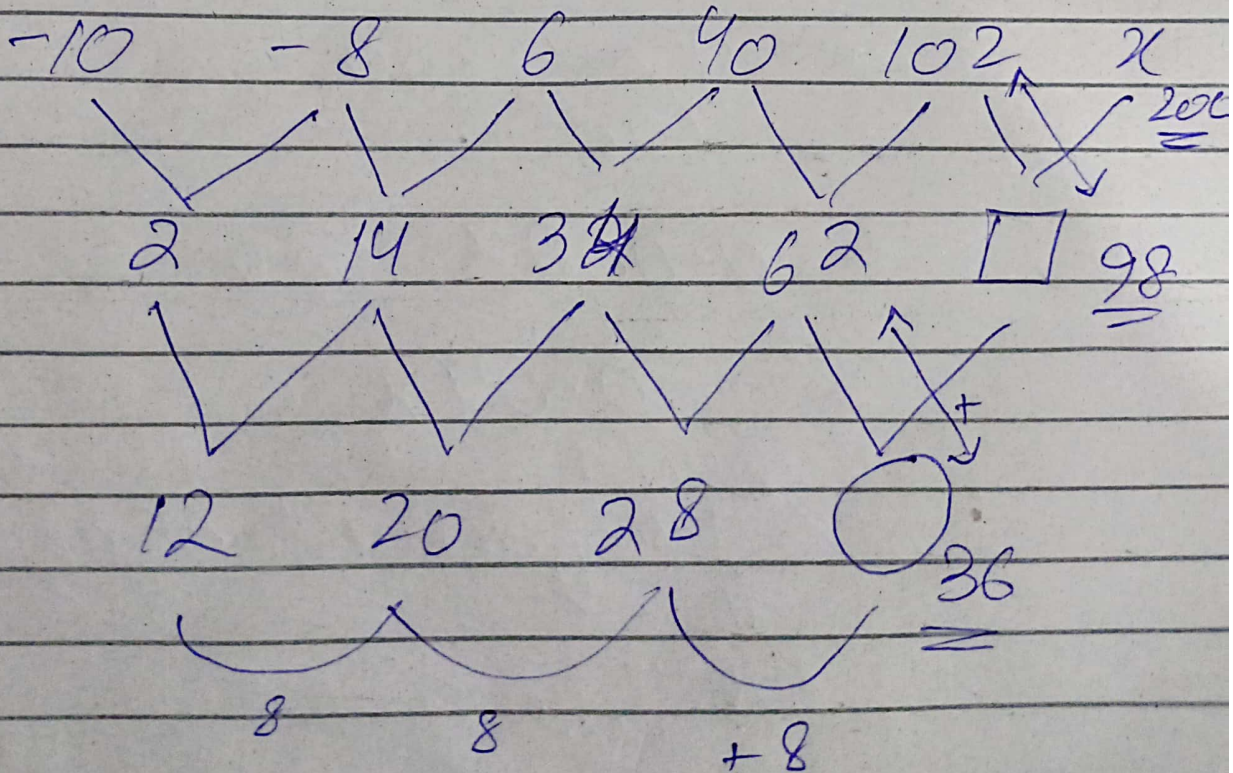 -10 -8 6 40 102 x
200
2 14 34 62 □ 98
+
12 20 28 ○ 36
8 8 +8